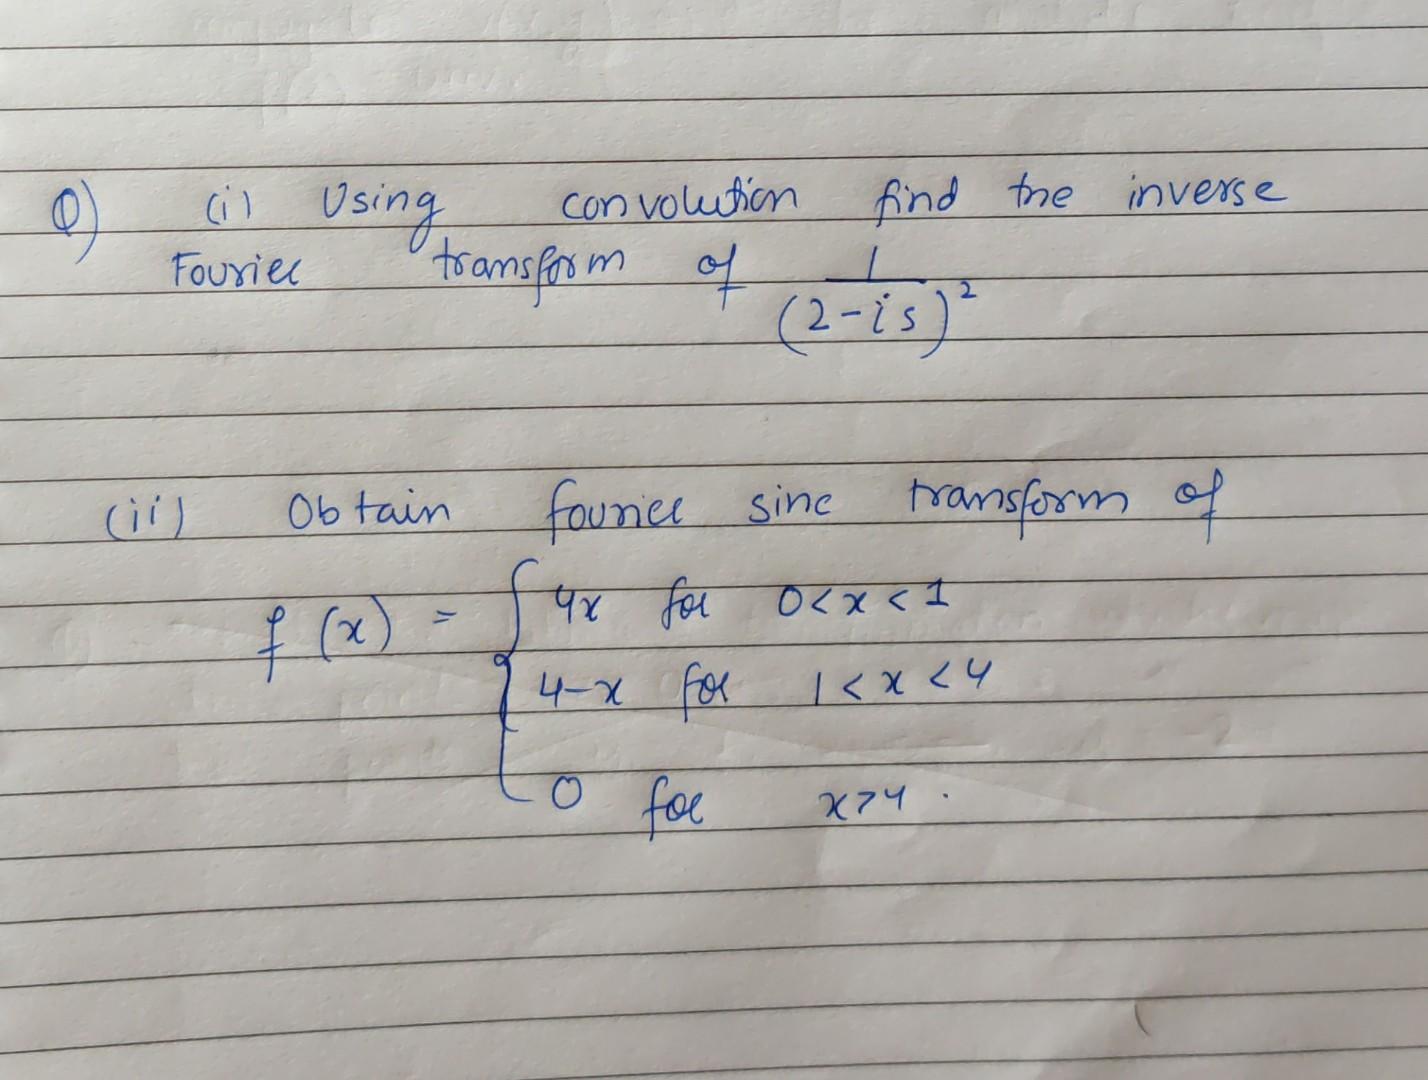 Q) (i) Using convolution find the inverse
Fourier transform of 1/(2-is)²
(ii) Obtain fourier sine transform of
f(x) = { 4x for 0<x<1
4-x for 1<x<4
0 for x>4.